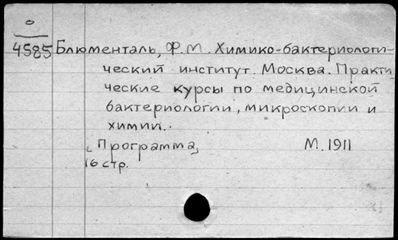 0
4585 Блюменталь, Ф.М. Химико-бактериологи-
ческий институт. Москва. Практи-
ческие курсы по медицинской
бактериологии, микроскопии и
химии.
Программа, М. 1911
16 стр.